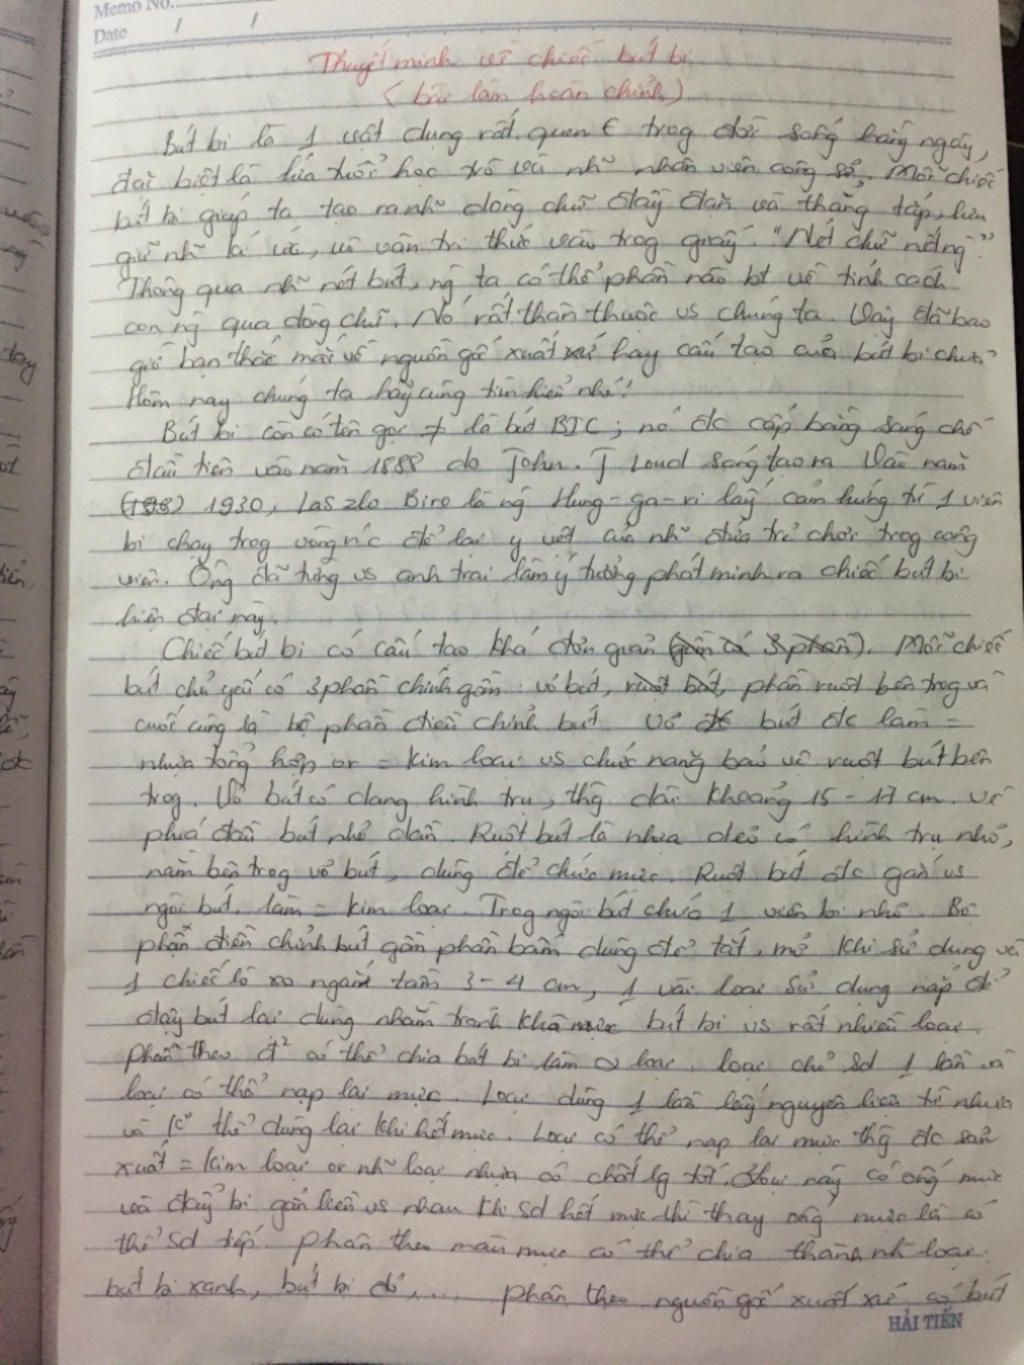 Memo No.
Date / /
Thuyết minh về chiếc bút bi
(bài làm hoàn chỉnh)
Bút bi là 1 vật dụng rất quen € trog đời sống hàng ngày,
đặc biệt là lứa tuổi học trò và nh~ nhân viên công sở. Mỗi chiếc
bút bi giúp ta tạo ra nh~ dòng chữ đầy đặn và thẳng tắp, lưu
giữ nh~ kí ức, và vân tri thức vào trog giấy. "Nét chữ nết ng`"
Thông qua nh~ nét bút, ng` ta có thể phần nào bt về tính cách
con ng` qua dòng chữ. Nó rất thân thuộc vs chúng ta. Vậy đã bao
giờ bạn thắc mắc về nguồn gốc xuất xứ hay cấu tạo của bút bi chưa?
Hôm nay chúng ta hãy cùng tìm hiểu nhé!
Bút bi còn có tên gọi ≠ là bút BIC; nó đc cấp bằng sáng chế
đầu tiên vào năm 1888 do John. J Loud sáng tạo ra. Vào năm
(198) 1930, Laszlo Biro là ng` Hung-ga-ri lấy cảm hứng từ 1 viên
bi chạy trog vũng nc để lại vệt của nh~ đứa trẻ chơi trog công
viên. Ông đã từng vs anh trai làm ý tưởng phát minh ra chiếc bút bi
hiện đại này.
Chiếc bút bi có cấu tạo khá đơn giản (gồm có 3 phần). Mỗi chiếc
bút chủ yếu có 3 phần chính gồm: vỏ bút, ruột bút, phần ruột bên trog và
cuối cùng là bộ phận điều chỉnh bút. Vỏ bút đc làm =
nhựa tổng hợp or = kim loại vs chức năng bảo vệ ruột bút bên
trog. Vỏ bút có dạng hình trụ, thg dài khoảng 15 - 17 cm. Về
phía đầu bút nhỏ dần. Ruột bút là nhựa dẻo có hình trụ nhỏ,
nằm bên trog vỏ bút, dùng để chứa mực. Ruột bút đc gắn vs
ngòi bút làm = kim loại. Trog ngòi bút chứa 1 viên bi nhỏ. Bộ
phận điều chỉnh bút gồm phần bấm dùng để tắt, mở khi sử dụng và
1 chiếc lò xo ngắn tầm 3 - 4 cm, 1 vài loại sử dụng nắp để
đậy bút lại dùng nhằm tránh khô mực bút bi vs rất nhiều loại.
Phân theo đ² có thể chia bút bi làm 2 loại. loại chỉ sd 1 lần và
loại có thể nạp lại mực. Loại dùng 1 lần lấy nguyên liệu từ nhựa
và k° thể dùng lại khi hết mực. Loại có thể nạp lại mực thg đc sản
xuất = kim loại or nh~ loại nhựa có chất lg tốt. loại này có ống mực
và đầy bi gắn liền vs nhau khi sd hết mực thì thay ống mực là có
thể sd tiếp. phân theo màu mực có thể chia thành nh` loại:
bút bi xanh, bút bi đỏ, .... phân theo nguồn gốc xuất xứ có bút
HẢI TIẾN